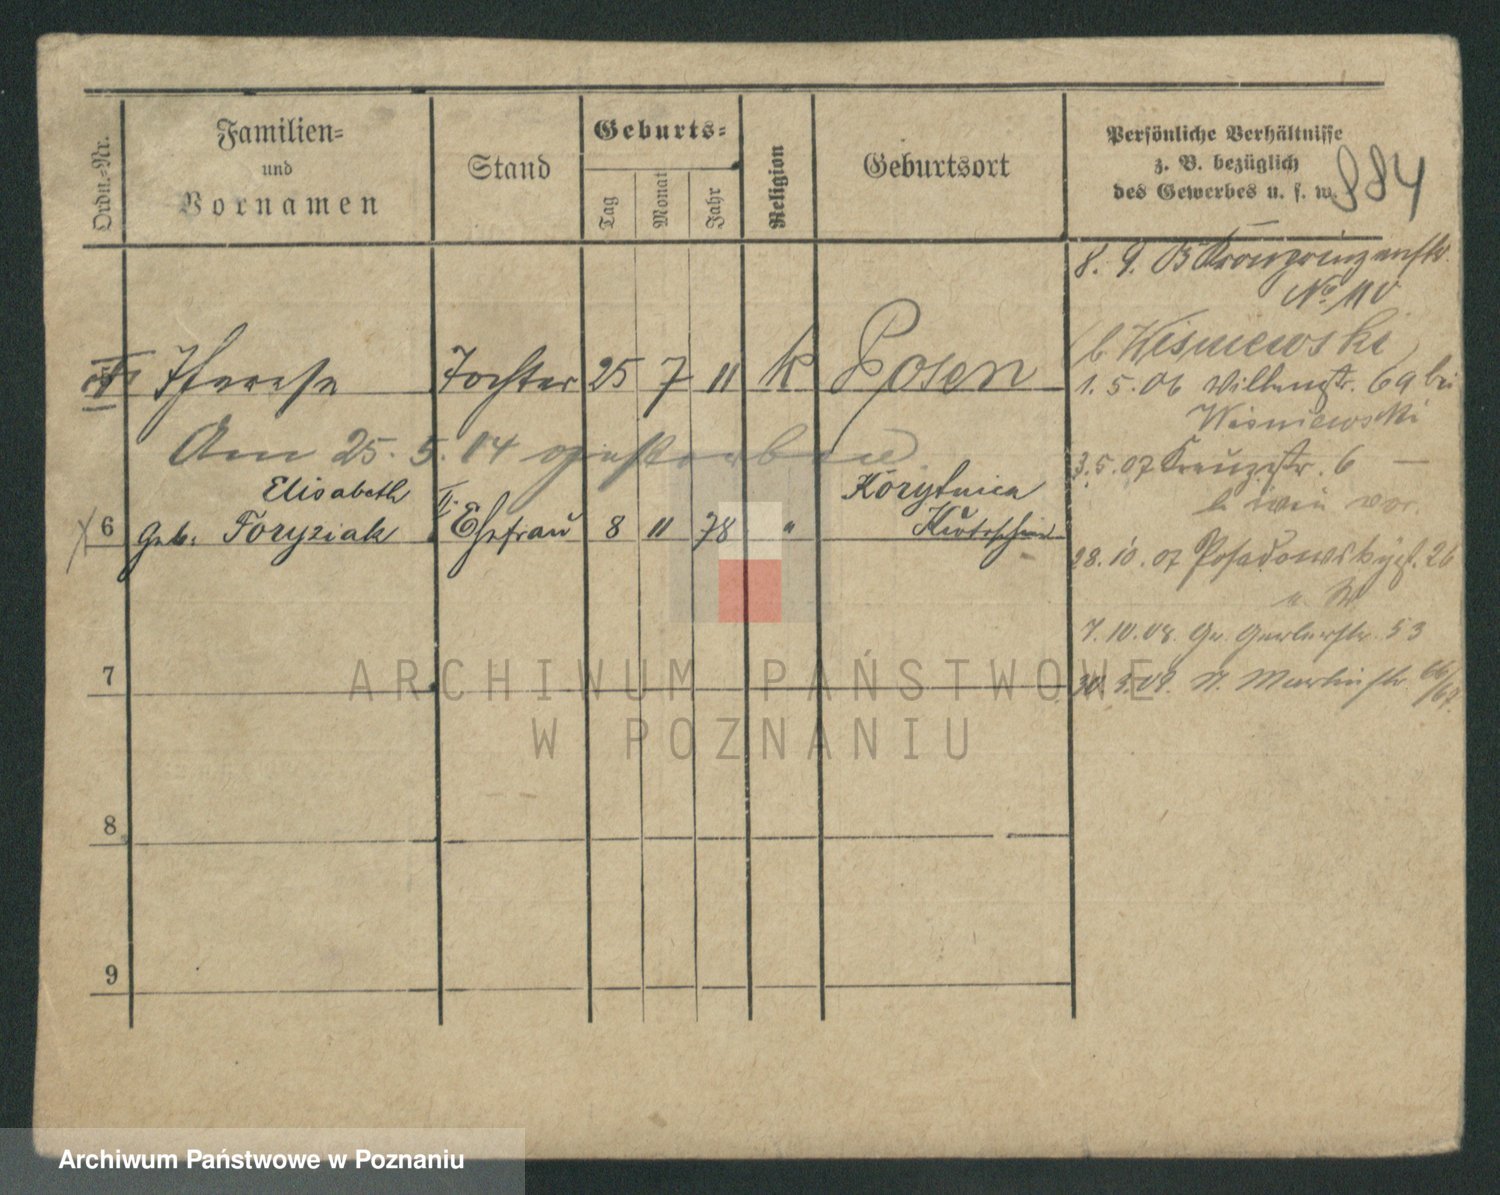 Ordn.-Nr.
Familien-
und
Vornamen
Stand
Geburts-
Tag
Monat
Jahr
Religion
Geburtsort
Persönliche Verhältnisse
z. B. bezüglich
des Gewerbes u. s. w.
884
8. 9. 05 Kronprinzenstr.
No. 110
b Wisniewski
Therese Tochter 25 7 11 k Posen
1. 5. 06 69 bei
Wisniewski
Am 25. 5. 14 gestorben
3.5.07 Kreuzstr. 6 —
Elisabeth
Korytnica
b wie vor.
6 geb. Foryziak II. Ehefrau 8 11 78 "
28. 10. 07 26
7. 10. 08. Gr. Gerberstr. 53
7
St. Martinstr. 66/67.
8
9
ARCHIWUM PAŃSTWOWE
W POZNANIU
Archiwum Państwowe w Poznaniu